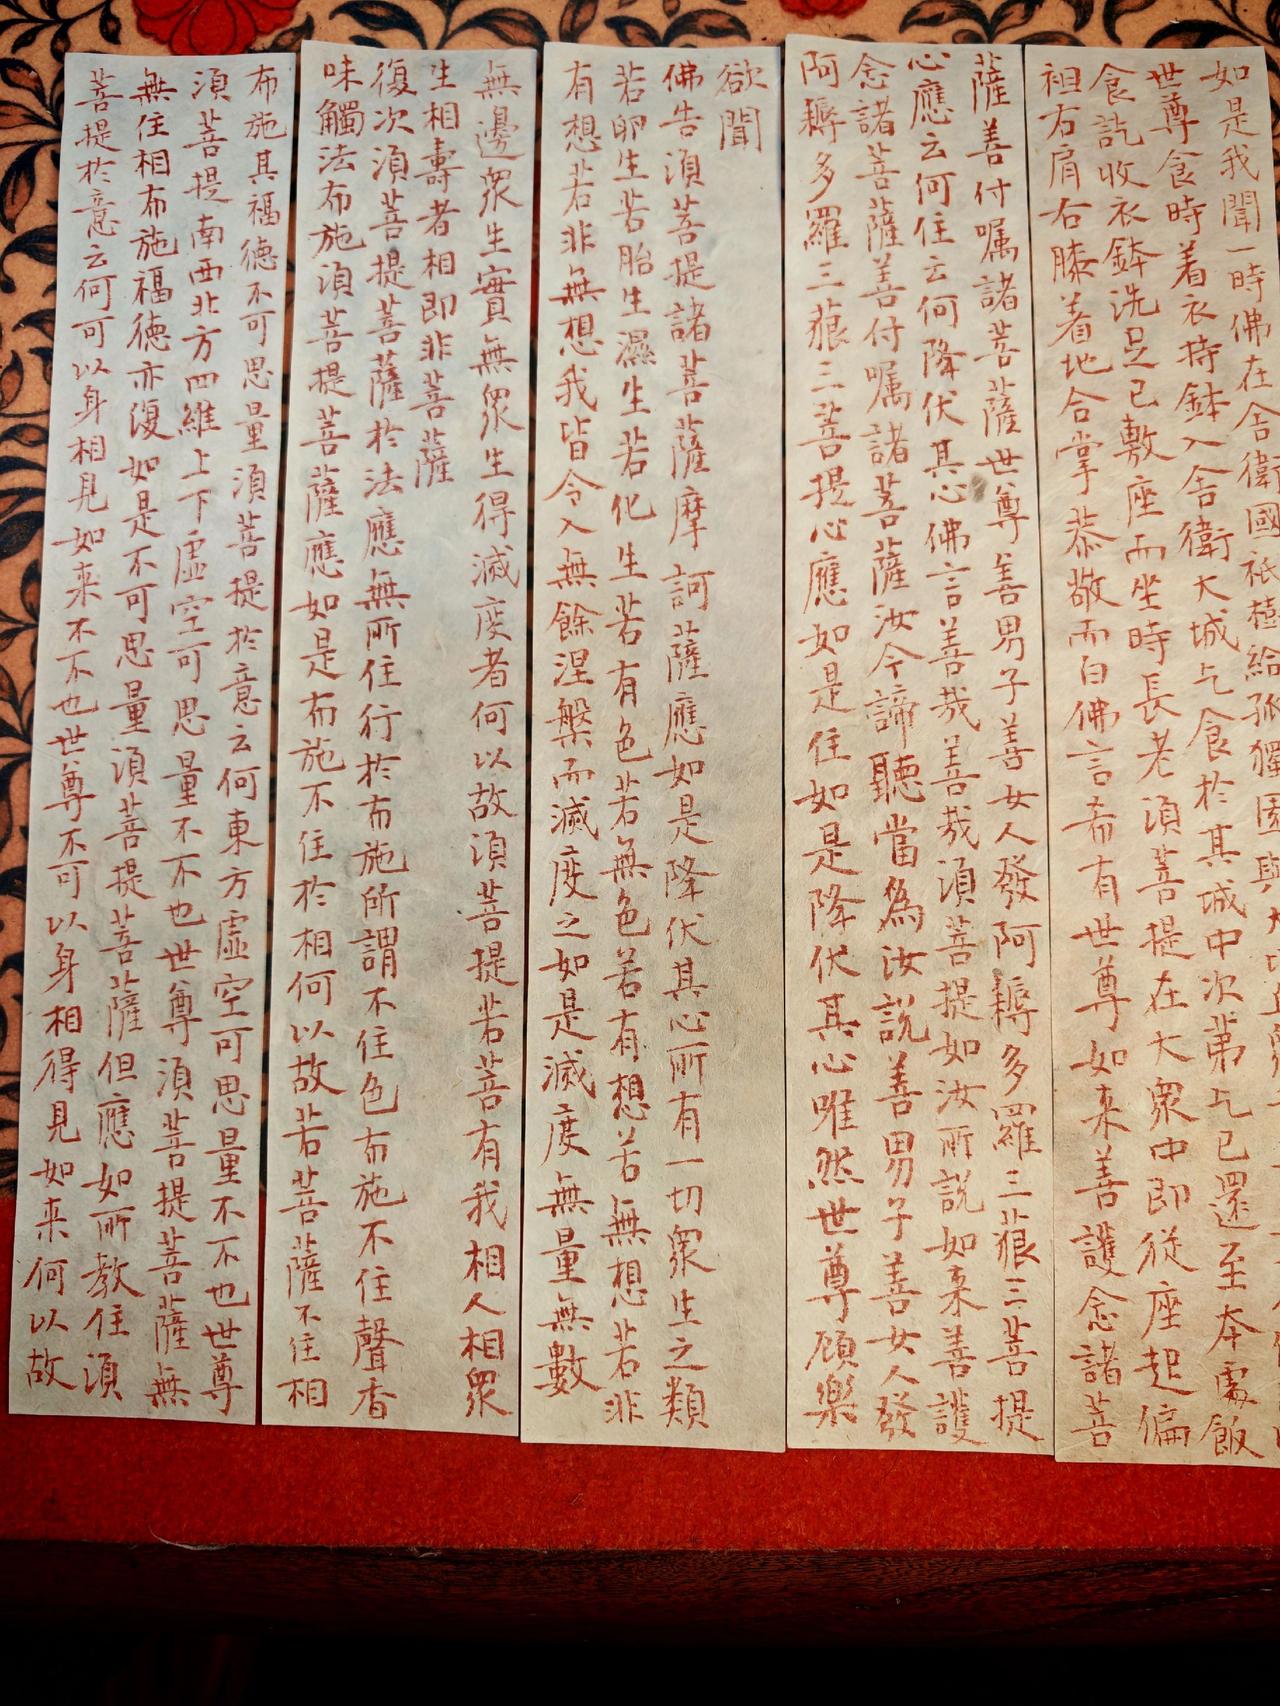 如是我聞一時佛在舍衛國祇樹給孤獨園與
世尊食時着衣持鉢入舍衛大城乞食於其城中次第乞已還至本處飯
食訖收衣鉢洗足已敷座而坐時長老須菩提在大眾中即從座起偏
袒右肩右膝着地合掌恭敬而白佛言希有世尊如来善護念諸菩
薩善付嘱諸菩薩世尊善男子善女人發阿耨多羅三藐三菩提
心應云何住云何降伏其心佛言善哉善哉須菩提如汝所說如来善護
念諸菩薩善付嘱諸菩薩汝今諦聽當為汝說善男子善女人發
阿耨多羅三藐三菩提心應如是住如是降伏其心唯然世尊願樂
欲聞
佛告須菩提諸菩薩摩訶薩應如是降伏其心所有一切眾生之類
若卵生若胎生濕生若化生若有色若無色若有想若無想若非
有想若非無想我皆令入無餘涅槃而滅度之如是滅度無量無數
無邊眾生實無眾生得滅度者何以故須菩提若菩有我相人相眾
生相壽者相即非菩薩
復次須菩提菩薩於法應無所住行於布施所謂不住色布施不住聲香
味觸法布施須菩提菩薩應如是布施不住於相何以故若菩薩不住相
布施其福德不可思量須菩提於意云何東方虛空可思量不不也世尊
須菩提南西北方四維上下虛空可思量不不也世尊須菩提菩薩無
無住相布施福德亦復如是不可思量須菩提菩薩但應如所教住須
菩提於意云何可以身相見如来不不也世尊不可以身相得見如来何以故